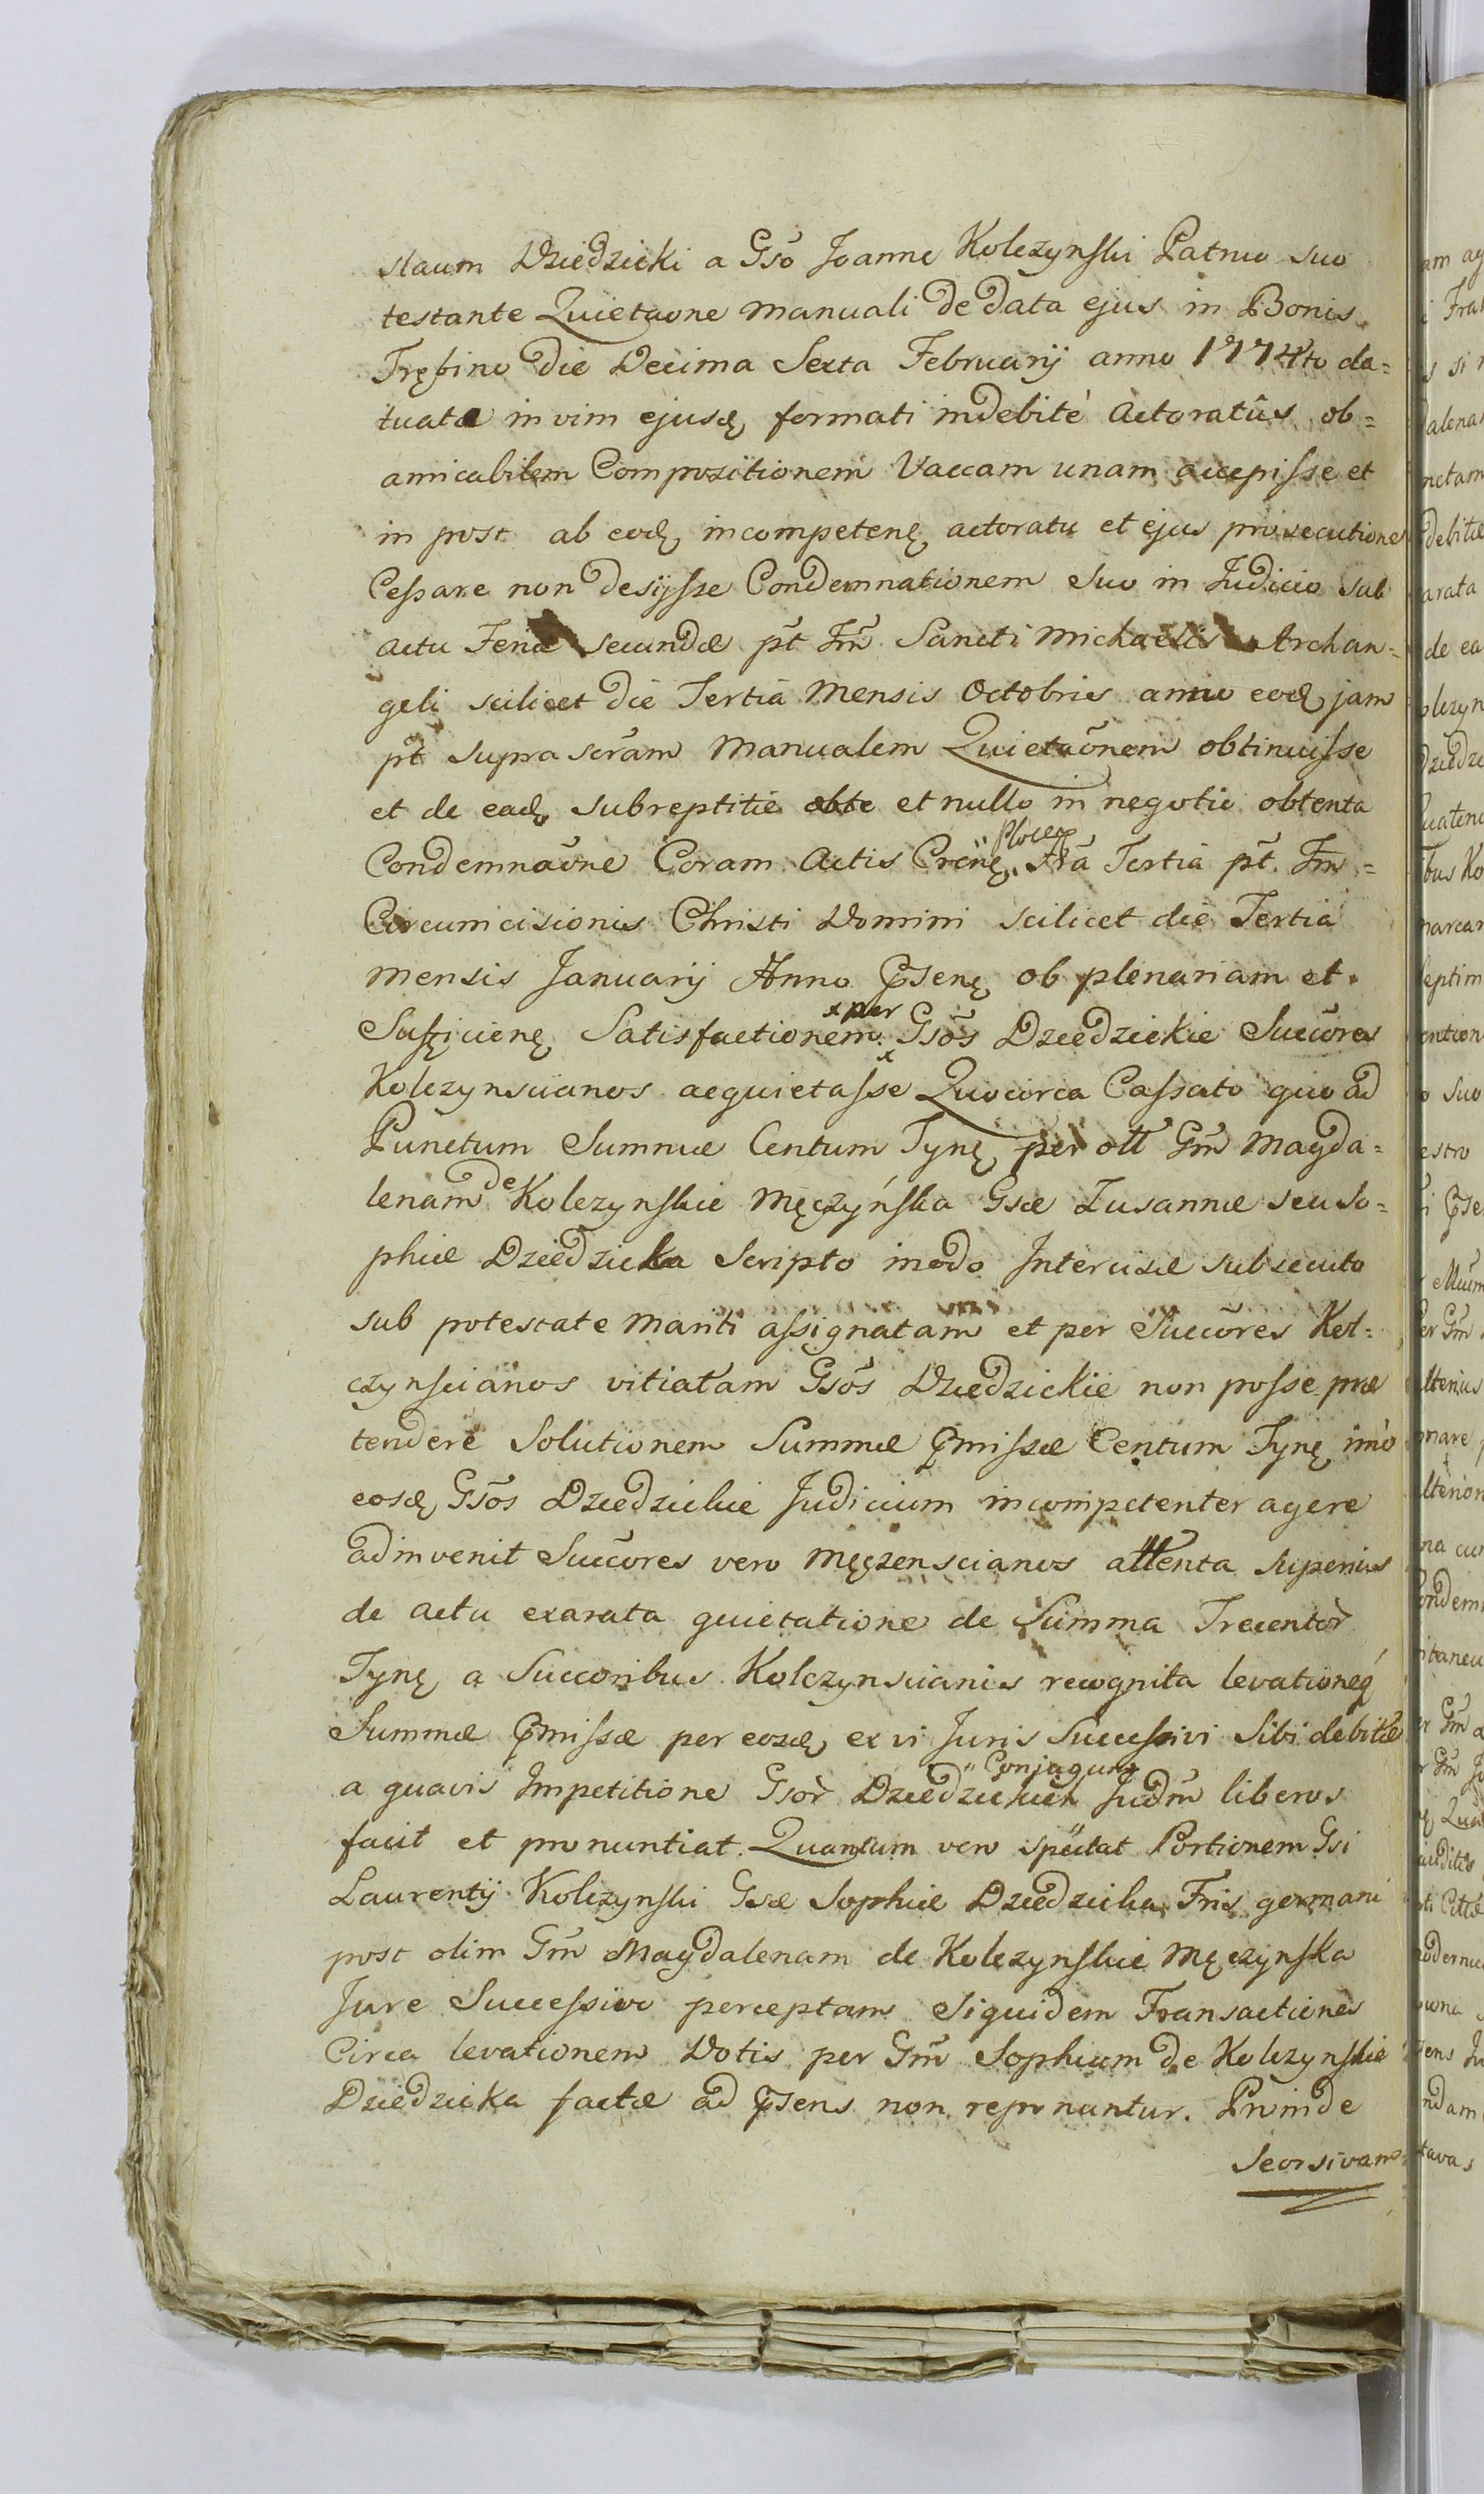 slaum Dziedzicki a Gso Joanne Kolczynski Patruo suo
testante Quietaōne manuali de data ejus in Bonis
Trębino die Decima Sexta Februarij anno 1774to da=
tuata in vim ejusđ formati indebité actoratûs ob=
amicabilem Compozitionem Vaccam unam accepisse et
in post ab eođ incompetenę actoratu et ejus prosecutione
Cessare non desijsse Condemnationem suo in Judicio sub
actu Feriæ secundæ pt̄ Fm̄ Sancti Michaelis Archan=
geli scilicet die Tertiâ Mensis Octobris anno eođ jam
pt̄ supra scr̄am Manualem Quietaōnem obtinuisse
et de eađ subreptitie et nullo in negotio obtenta
Condemnaōne Coram Actis Crēnę " Plocen Fr̄a Tertiâ pt̄ Fm̄=
Circumcisionis Christi Domini scilicet die Tertiâ
mensis Januarij Anno Pr̄senę ob plenariam et
Sufficienę Satisfactionem x per Gsōs Dziedzickie Succōres
Kolczynscianos acquietasse Quocirca Cassato quo ad
Punctum Summæ Centum Tynę per oll Gm̄ Magda=
lenam de Kolczynskie Męczyńska Gsæ Zusannæ seu So=
phiæ Dziedzicka Scripto modo Intercisæ subsecuto
sub potestate mariti assignatam et per Succōres Kol=
czynscianos vitiatam Gsōs Dziedzickie non posse præ
tendere Solutionem Summæ Pr̄missæ Centum Tynę imò
eosđ Gsōs Dziedzickie Judicium incompetenter agere
adinvenit Succōres vero Męczenscianos attenta superius
de actu exarata quietatione de Summa Trecentor̄
Tynę a Succoribus Kolczynscianis recognita levationeq́
Summæ Pr̄missæ per eosđ ex vi Juris Successivi Sibi debitæ
a quavis Impetitione Gsor̄ Dziedzickich " Conjugum Judm̄ liberos
facit et pronuntiat. Quantum vero spectat Portionem Gsi
Laurentij Kolczynski Gsæ Sophiæ Dziedzicka Fris germani
post olim Gm̄ Magdalenam de Kolczynskie Męczynska
Jure Successivo perceptam siquidem Transactiones
Circa levationem Dotis per Gm̄ Sophiam de Kolczynskie
Dziedzicka factæ ad Pr̄sens non reponantur. Proinde
Seorsivam